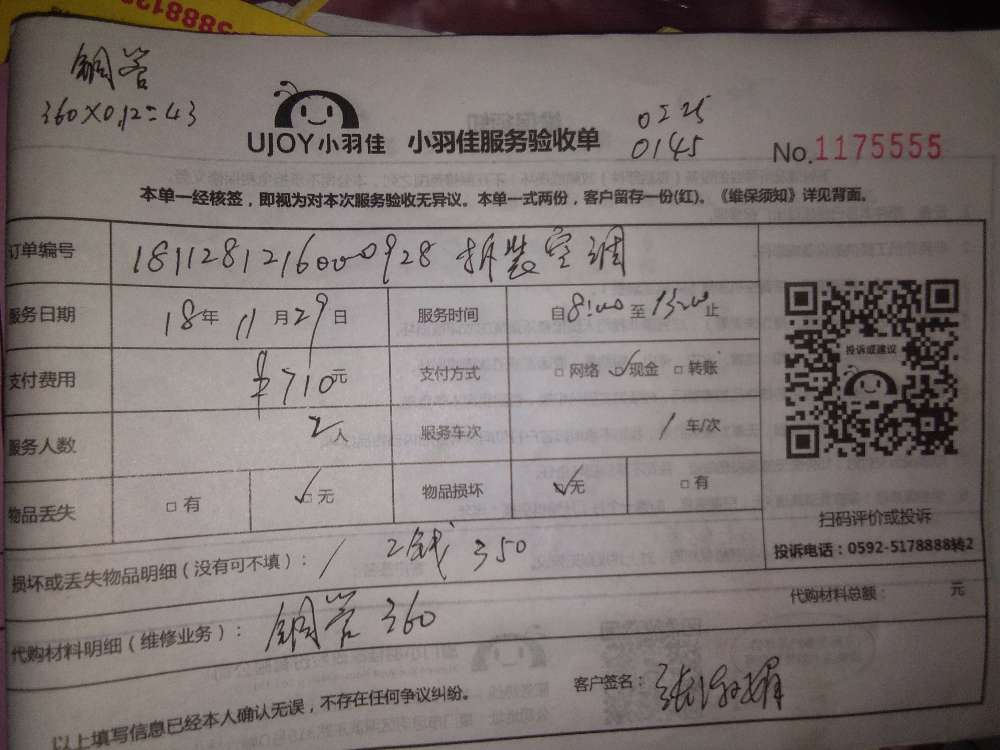 588812
铜管
360×0.12=43
UJOY小羽佳 小羽佳服务验收单
0145
No.1175555
本单一经核签，即视为对本次服务验收无异议。本单一式两份，客户留存一份(红)。《维保须知》详见背面。
订单编号 181128121600928 拆装空调
服务日期 18年 11月29日 服务时间 自8:00至13:20止
支付费用 ¥710元 支付方式 □网络 ☑现金 □转账
服务人数 2人 服务车次 1车/次
物品丢失 □有 ☑无 物品损坏 ☑无 □有
投诉或建议
扫码评价或投诉
投诉电话：0592-5178888转2
损坏或丢失物品明细（没有可不填）： / 350
代购材料总额： 元
代购材料明细（维修业务）： 铜管360
以上填写信息已经本人确认无误，不存在任何争议纠纷。 客户签名：张